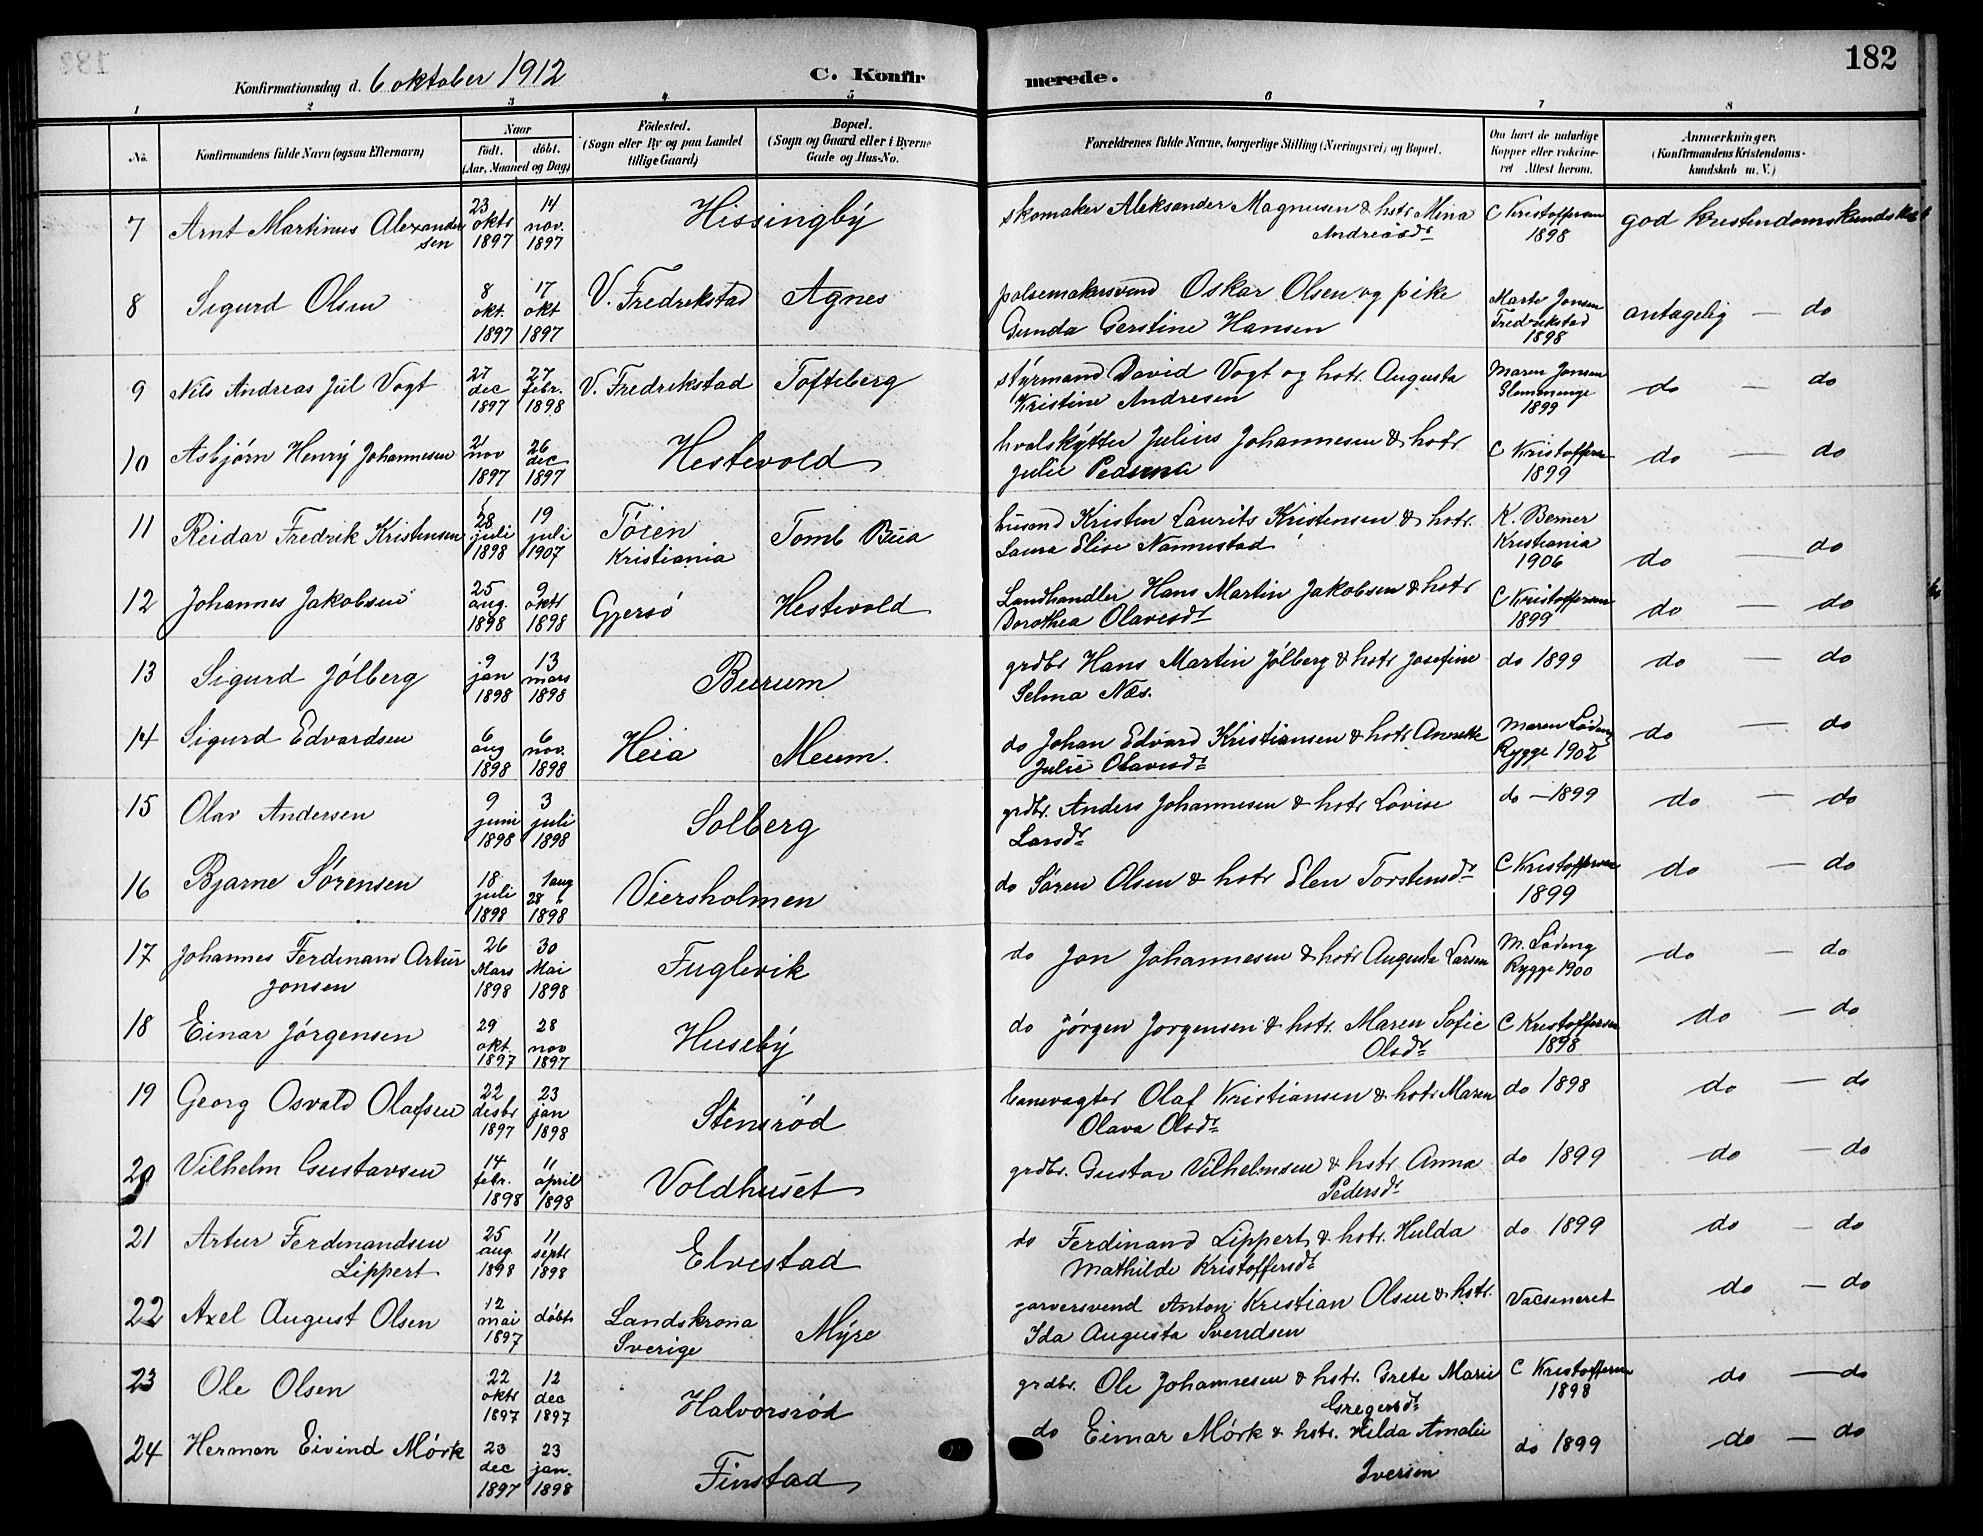 182
Konfirmationsdag d. 6 oktober 1912
C. Konfirmerede.
1 2 3 4 5 6 7 8
No.
Konfirmandens fulde Navn (ogsaa Efternavn)
Naar
födt. döbt.
(Aar, Maaned og Dag)
Födested.
(Sogn eller By og paa Landet
tillige Gaard)
Bopæl.
(Sogn og Gaard eller i Byerne
Gade og Hus-No.
Forældrenes fulde Navne, borgerlige Stilling (Næringsvei) og Bopæl.
Om havt de naturlige
Kopper eller vakcine-
ret Attest herom.
Anmærkninger.
(Konfirmandens Kristendoms-
kundskab m. V.)
7 Arnt Martinus Alexandersen 23 oktr 1897 14 nov. 1897 Hissingby skomaker Aleksander Magnusen & hstr Mina Andreasdr C Kristoffersen 1898 god kristendomskundskab
8 Sigurd Olsen 8 okt. 1897 17 okt 1897 V. Fredrikstad Agnes pølsemakersvend Oskar Olsen og pike Gunda Gerstine Hansen Marte Jonsen Fredrikstad 1898 antagelig — do
9 Nils Andreas Jul Vogt 27 dec 1897 27 febr. 1898 V. Fredrikstad Tofteberg styrmand David Vogt og hstr. Augusta Kristine Andresen Maren Jonsen Glemminge 1899 do — do
10 Asbjørn Henry Johannesen 21 nov 1897 26 dec 1897 Hestevold hvalskytter Julius Johannesen & hstr. Julie Pedersen C Kristoffersen 1899 do — do
11 Reidar Fredrik Kristensen 28 juli 1898 19 juli 1907 Tøien Kristiania Tomb Bua husmd Kristen Laurits Kristensen & hstr. Laura Elise Nannestad K. Berner Kristiania 1906 do — do
12 Johannes Jakobsen 25 aug. 1898 9 oktr 1898 Gjersø Hestevold Landhandler Hans Martin Jakobsen & hstr Dorothea Olavesdr C Kristoffersen 1899 do — do
13 Sigurd Jølberg 9 jan 1898 13 mars 1898 Burum grdbr Hans Martin Jølberg & hstr Josefine Selma Næs. do 1899 do — do
14 Sigurd Edvardsen 6 aug 1898 6 nov. 1898 Heia Meum. do Johan Edvard Kristiansen & hstr Annette Julie Olavesdr Maren Lødeng Rygge 1902 do — do
15 Olav Andersen 9 juni 1898 3 juli 1898 Solberg grdbr. Anders Johannesen & hstr Lovise Larsdr do — 1899 do — do
16 Bjarne Sørensen 18 juli 1898 1 aug 28 1898 Viersholmen do Søren Olsen & hstr Elen Torstensdr C Kristoffersen 1899 do — do
17 Johannes Ferdinand Artur Jonsen 26 Mars 1898 30 Mai 1898 Fuglevik do Jon Johannesen & hstr Augusta Larsen M. Lødeng Rygge 1900 do — do
18 Einar Jørgensen 29 okt. 1897 28 nov 1897 Huseby do Jørgen Jorgensen & hstr. Maren Sofie Olsdr C Kristoffersen 1898 do — do
19 Georg Osvald Olafsen 22 desbr 1897 23 jan 1898 Stensrød banevagter Olaf Kristiansen & hstr Maren Olava Olsdr do 1898 do — do
20 Vilhelm Gustavsen 14 febr. 1898 11 april 1898 Voldhuset grdbr. Gustav Vilhelmsen & hstr Anna Pedersdr do 1899 do — do
21 Artur Ferdinandsen Lippert 25 aug 1898 11 septr 1898 Elvestad do Ferdinand Lippert & hstr. Hulda Mathilde Kristoffersdr do 1899 do — do
22 Axel August Olsen 12 mai 1897 døbt Landskrona Sverige Myre garversvend Anton Kristian Olsen & hstr. Ida Augusta Svendsen Vacsineret do — do
23 Ole Olsen 22 oktr 1897 12 dec 1897 Halvorsrød grdbr. Ole Johannesen & hstr. Grete Marie Gregersdr C Kristoffersen 1898 do — do
24 Herman Eivind Mørk 23 dec 1897 23 jan. 1898 Finstad do Einar Mørk & hstr. Hilda Amalie Iversen do 1899 do — do